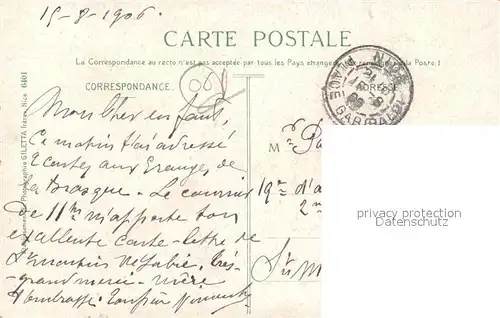 15-8-1906
CARTE POSTALE
La Correspondance au recto n'est pas acceptée par tous les Pays étrangers la Poste.)
CORRESPONDANCE.
NICE
PLACE GARIBALDI
Photographie GILETTA frères, Nice
Mon Cher enfant,
Ce matin t'ai adressé
2 cartes aux Granges de
la Brasque - Le courrier
de 11h m'apporte ton
excellente carte-lettre de
St Martin Vésubie, très-
grand merci - mère
t'embrasse. Ton père
M
19e d'a
2
St M
privacy protection
Datenschutz